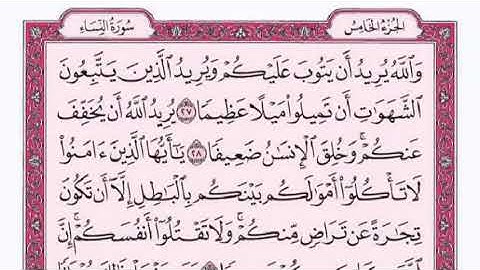 الجزء الخامس
سورة النساء
وَٱللَّهُ يُرِيدُ أَن يَتُوبَ عَلَيۡكُمۡ وَيُرِيدُ ٱلَّذِينَ يَتَّبِعُونَ
ٱلشَّهَوَٰتِ أَن تَمِيلُواْ مَيۡلًا عَظِيمٗا ٢٧ يُرِيدُ ٱللَّهُ أَن يُخَفِّفَ
عَنكُمۡۚ وَخُلِقَ ٱلۡإِنسَٰنُ ضَعِيفٗا ٢٨ يَٰٓأَيُّهَا ٱلَّذِينَ ءَامَنُواْ
لَا تَأۡكُلُوٓاْ أَمۡوَٰلَكُم بَيۡنَكُم بِٱلۡبَٰطِلِ إِلَّآ أَن تَكُونَ
تِجَٰرَةً عَن تَرَاضٖ مِّنكُمۡۚ وَلَا تَقۡتُلُوٓاْ أَنفُسَكُمۡۚ إِنَّ